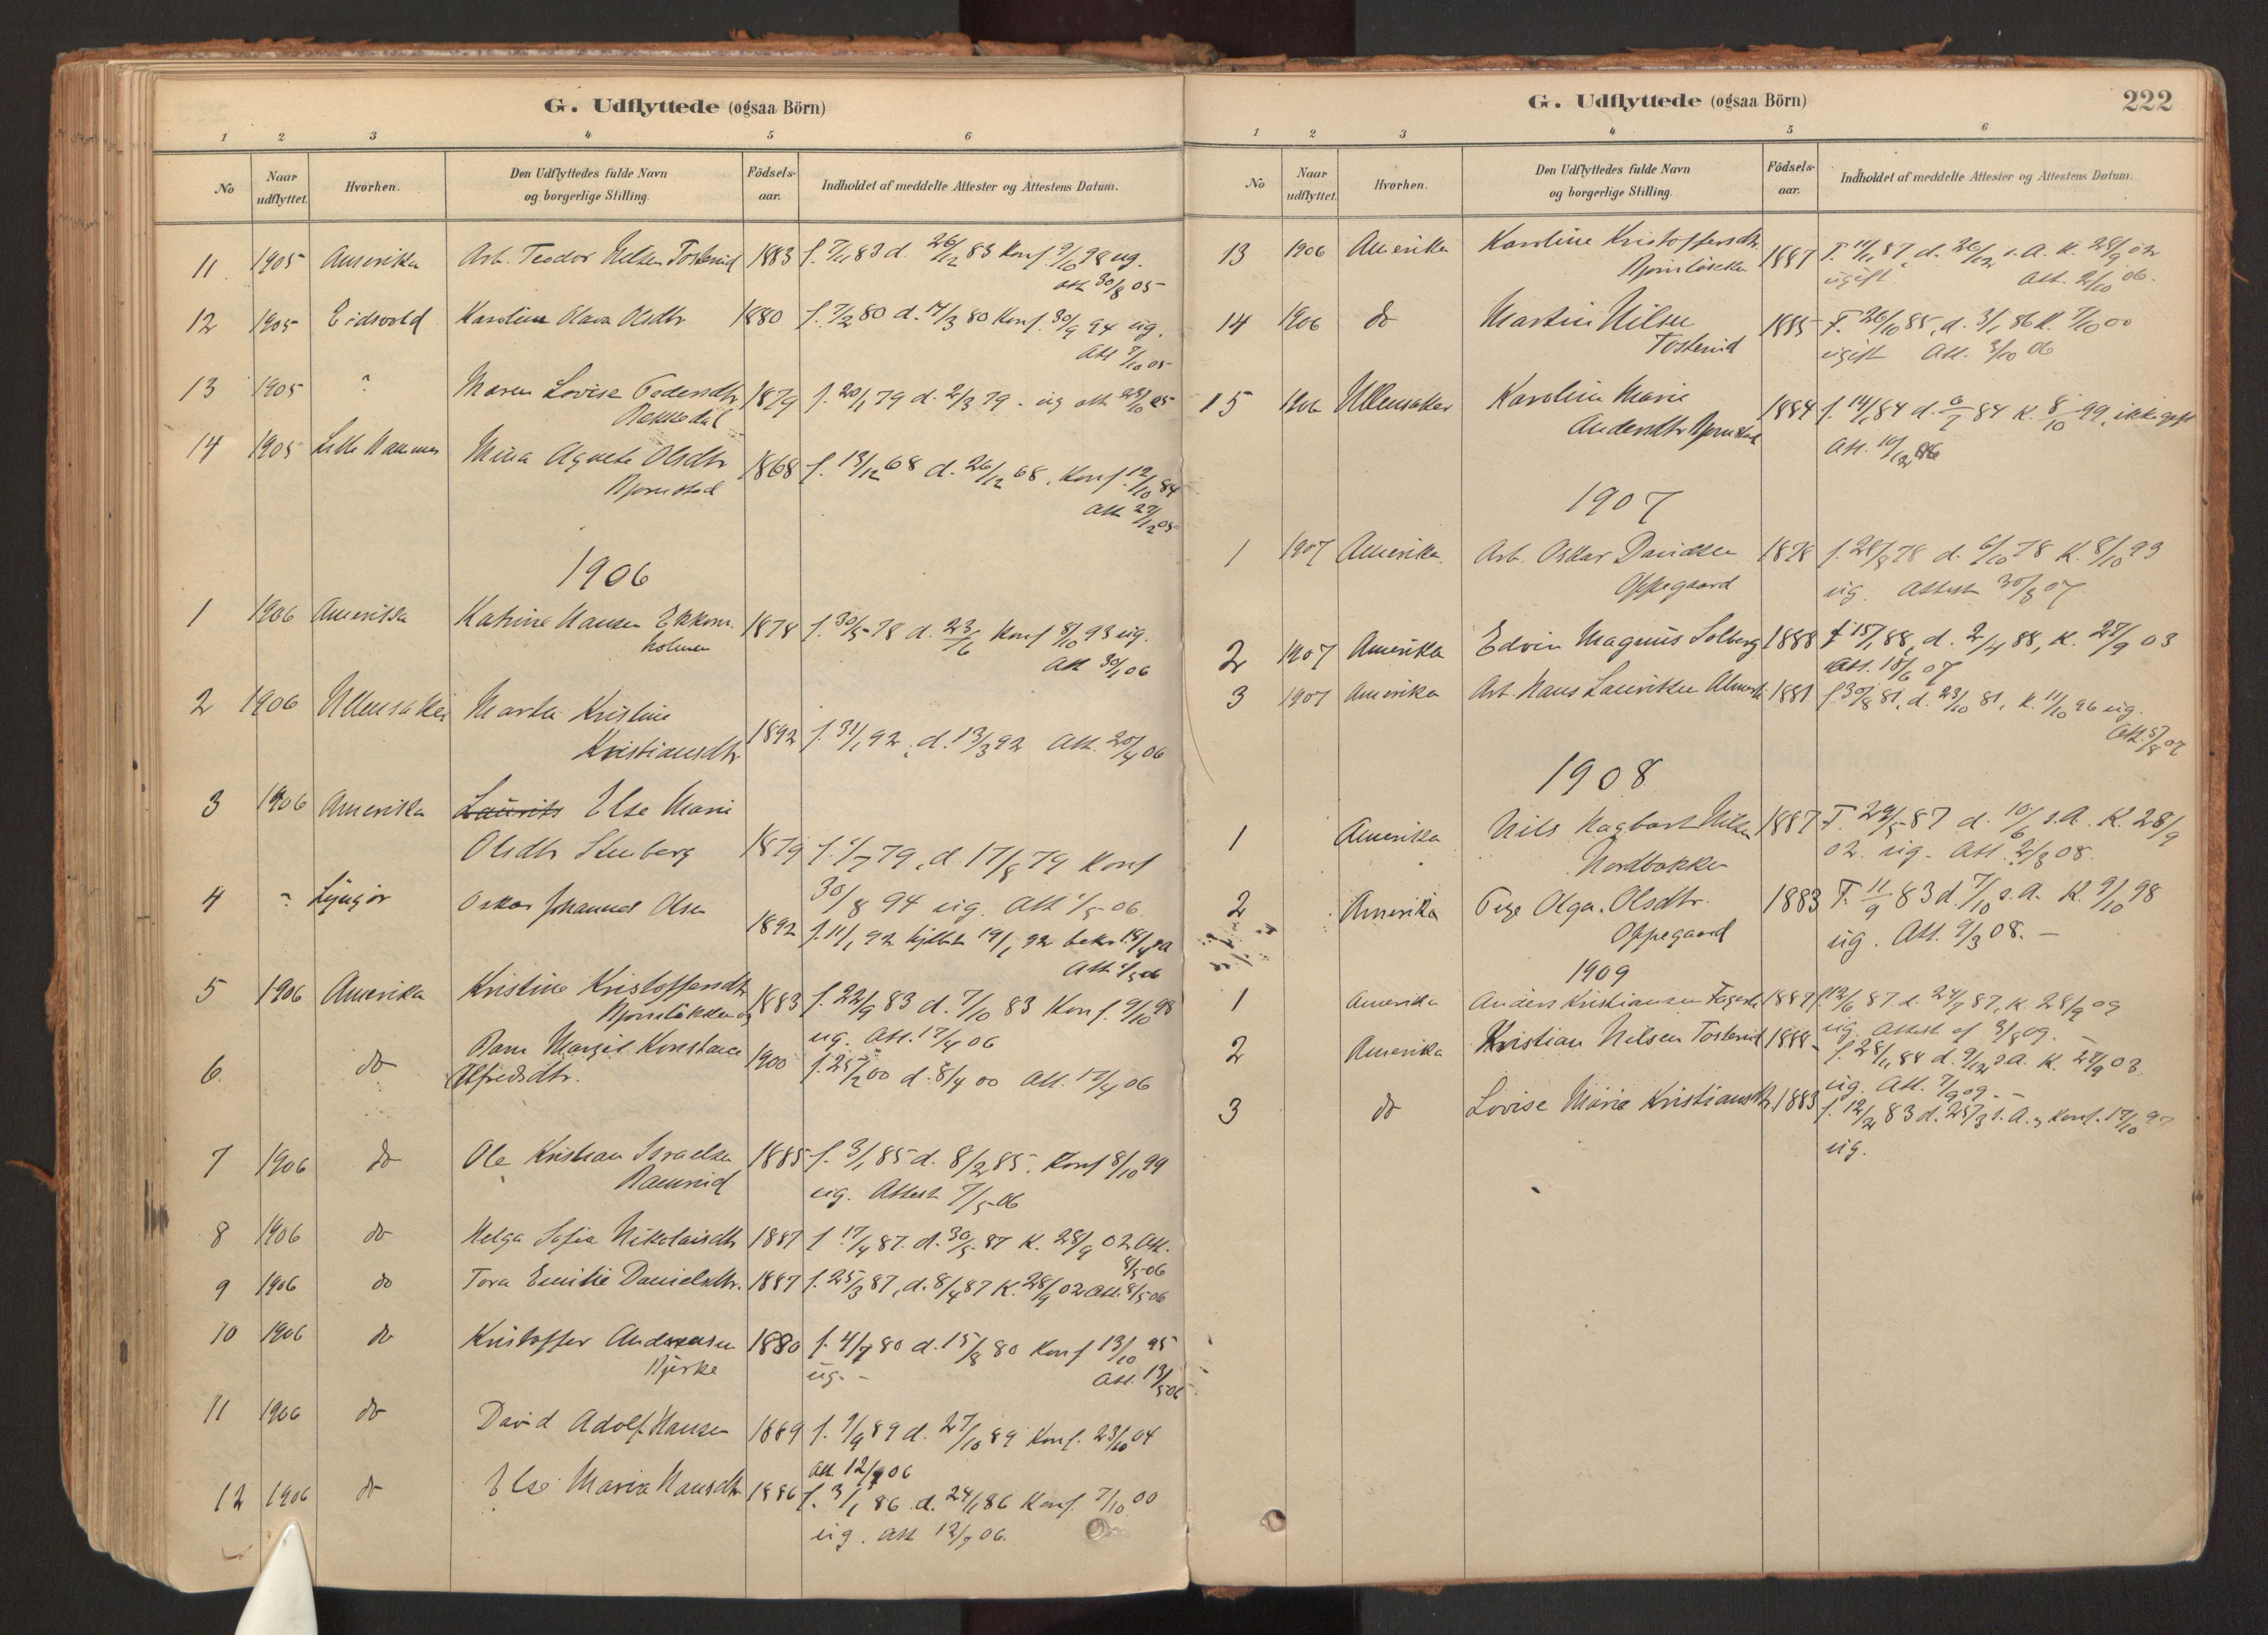 G. Udflyttede (ogsaa Börn)
1 2 3 4 5 6
No Naar udflyttet. Hvorhen. Den Udflyttedes fulde Navn og borgerlige Stilling. Födsels-aar. Indholdet af meddelte Attester og Attestens Datum.
11 1905 Amerika Arb. Teodor Nilsen Tosterud 1883 f. 7/11 83 d. 26/12 83 Konf. 9/10 98 ug.
att 30/8 05
12 1905 Eidsvold Karoline Olava Olsdtr 1880 f. 7/2 80 d. 14/3 80 Konf. 30/9 94 ug.
Att 7/10 05
13 1905 " Maren Lovise Pedersdtr 1879 f. 20/1 79 d. 2/3 79 - ug att 23/10 05
Bakkedal
14 1905 Lille Hammer Mina Agnete Olsdtr 1868 f. 13/12 68 d. 26/12 68, Konf. 12/10 84
Bjørnstad
Att 27/12 05
1906
1 1906 Amerika Katrine Hansen Ekkorn 1878 f. 30/5 78 d. 23/6 Konf 8/10 93 ug.
holmen
Att 30/1 06
2 1906 Ullensaker Marta Kristine
Kristiansdtr 1892 f. 31/1 92, d. 13/3 92 Att. 20/4 06
3 1906 Amerika Laurits Else Marie
Olsdtr Stenberg 1879 f. 1/7 79, d. 17/8 79 Konf
30/8 94 ug. Att 1/5 06
4 " Lyngør Oskar Johannes Olsen
1892 f. 11/1 92 hjdbt 19/1 92 bekr 18/4 92
Att 1/5 06
5 1906 Amerika Kristine Kristoffersdtr
Bjørnløkken og 1883 f. 22/9 83 d. 7/10 83 Konf. 9/10 98
ug. Att. 17/4 06
6 do Barn Margit Konstance
Alfredsdtr. 1900 f. 25/2 00 d. 8/4 00 Att. 17/4 06
7 1906 do Ole Kristian Israelsen 1885 f. 3/1 85 d. 8/2 85. Konf 8/10 99
Ramrud ug. Attest 7/5 06
8 1906 do Helga Sofie Nikolaisdtr 1887 f 17/4 87. d. 30/5 87 K. 28/9 02 Att.
8/5 06
9 1906 do Tora Emilie Danielsdtr. 1887 f. 25/3 87, d. 8/4 87 K. 28/9 02 Att. 8/5 06
10 1906 do Kristoffer Andreasen 1880 f. 4/7 80 d. 15/8 80 Konf 13/10 95
Bjerke ug. - Att. 13/5 06
11 1906 do David Adolf Hansen 1889 f. 9/9 89 d. 27/10 89 Konf. 23/10 04
Att 12/9 06
12 1906 do Else Maria Hansdtr 1886 f. 3/1 86 d. 24/1 86 Konf. 7/10 00
ug. Att 12/9 06.
G. Udflyttede (ogsaa Börn) 222
1 2 3 4 5 6
No Naar udflyttet. Hvorhen. Den Udflyttedes fulde Navn og borgerlige Stilling. Födsels-aar. Indholdet af meddelte Attester og Attestens Datum.
13 1906 Amerika Karoline Kristoffersdtr
Bjørnløkken 1887 F. 14/11 87, d. 26/12 s.A. K. 28/9 02
ugift. Att. 2/10 06.
14 1906 do Martin Nilsen 1885 F. 26/10 85, d. 3/1 86 K. 7/10 00
Tosterud ugift Att. 3/10 06
15 1906 Ullensaker Karoline Marie 1884 f. 14/1 84 d. 6/7 84 K. 8/10 99, ikke gift
Andersdtr Bjørnstad Att. 10/12 06
1907
1 1907 Amerika Arb. Oskar Davidsen 1878 f. 28/8 78 d. 6/10 78 K. 8/10 93
Oppegaard ug. Attest 30/3 07
2 1907 Amerika Edvin Magnus Solberg 1888 f 15/1 88, d. 2/4 88, K. 27/9 03
Att. 18/6 07
3 1907 Amerika Arb. Hans Lauritsen 1881 f. 30/8 81, d. 23/10 81, K. 11/10 96 ug.
Att. 5/8 07
1908
1 Amerika Nils Hagbart Nilsen 1887 F. 29/5 87 d. 10/6 s.A. K. 28/9
Nordbakken 02. ug. Att. 2/3 08.
2 Amerika Pige Olga Olsdtr. 1883 F. 11/9 83 d. 7/10 s.A. K. 9/10 98
Oppegaard ug. Att. 9/3 08. -
1909
1 Amerika Anders Kristiansen 1887 f. 12/6 87 d. 24/7 87, K. 28/9 02
ug. Attest af 3/8 09.
2 Amerika Kristian Nilsen Tosterud 1888 f. 28/11 88 d. 9/12 s.A. K. 27/9 03.
ug. Att. 7/9 09. -
3 do Lovise Marie Kristiansdtr. 1883 f. 12/2 83 d. 25/3 s.A., Konf. 17/10 97
ug.